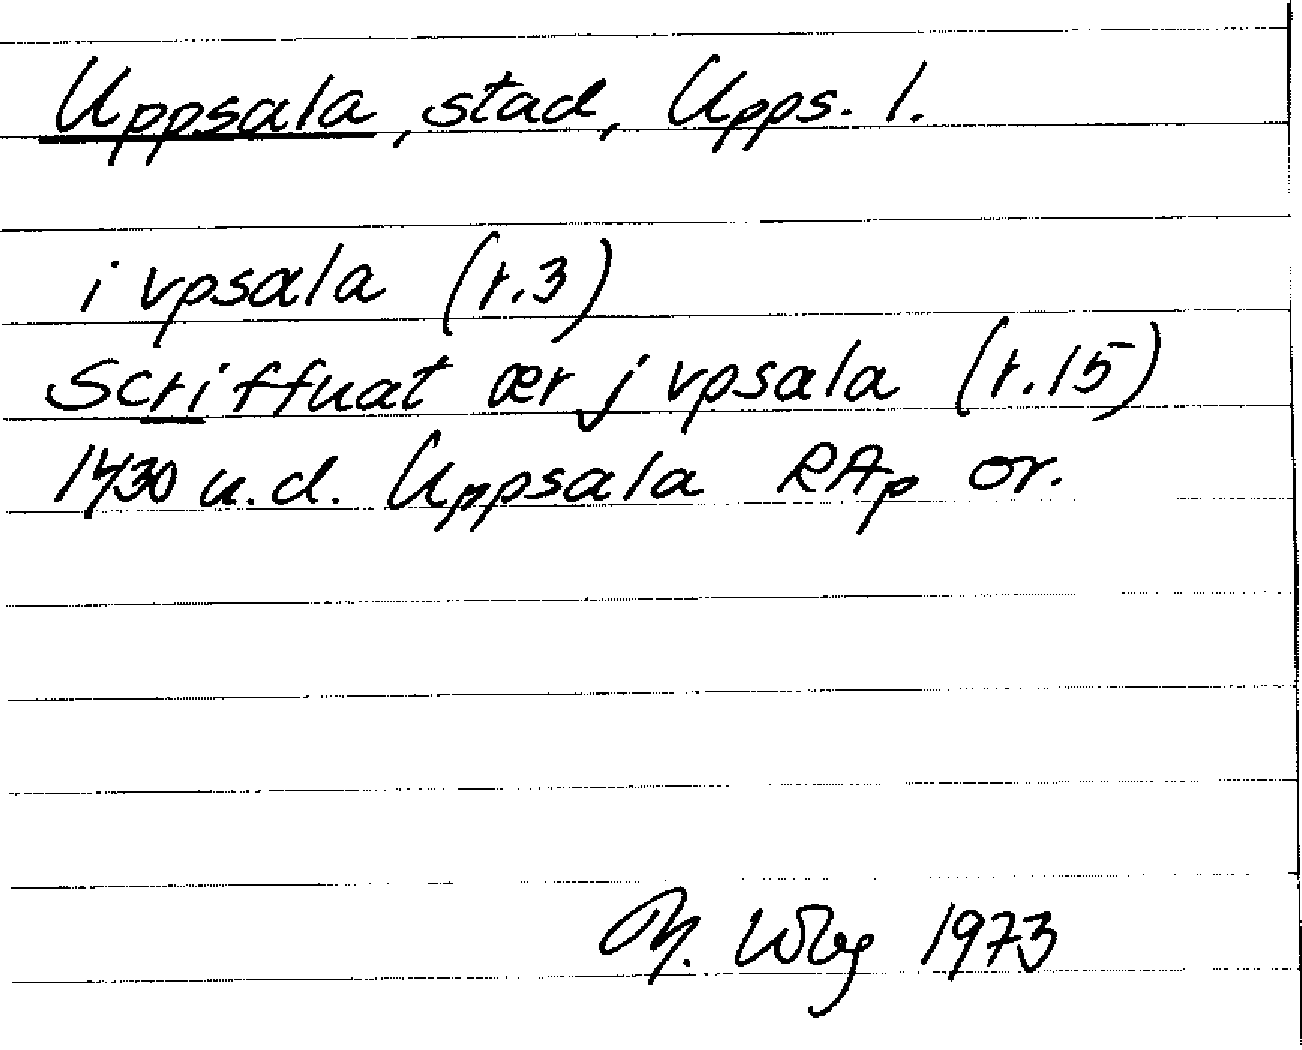 Uppsala, stad, Upps. l.
i vpsala (r.3)
Scriffuat ær j vpsala (r.15)
1430 u.d. Uppsala RAp or.
M. Wbg 1973